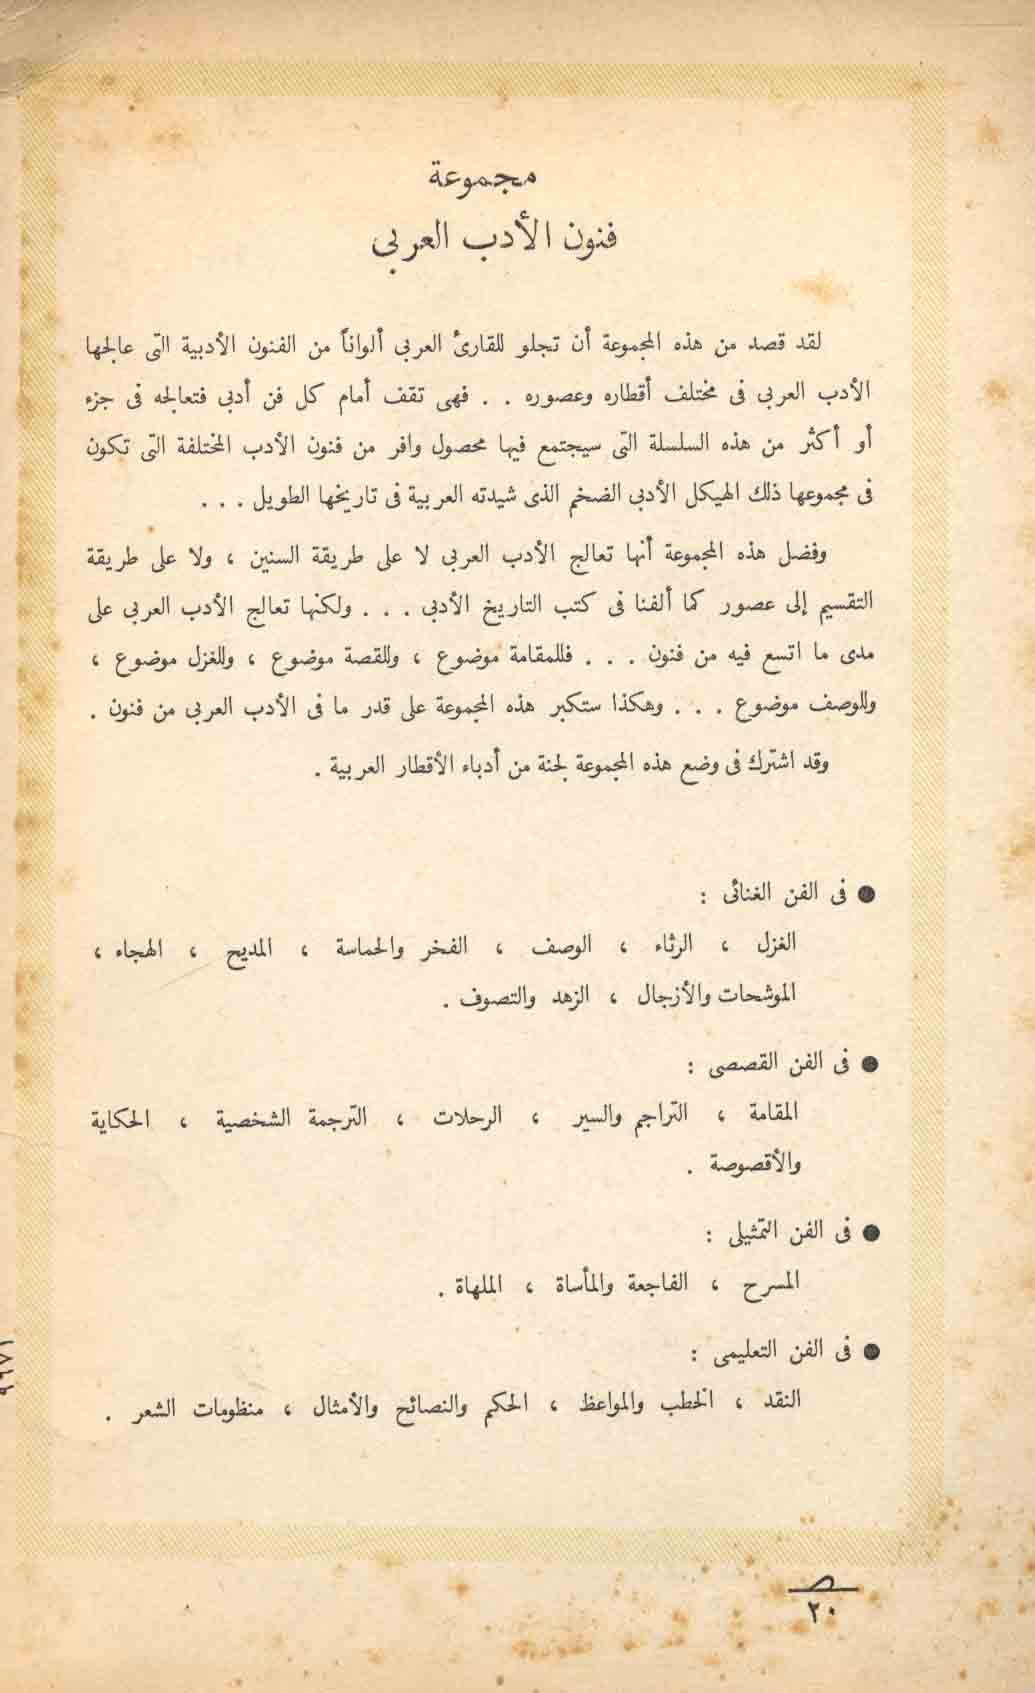 مجموعة
فنون الأدب العربى
لقد قصد من هذه المجموعة أن تجلو للقارئ العربى ألواناً من الفنون الأدبية التى عالجها
الأدب العربى فى مختلف أقطاره وعصوره . . فهى تقف أمام كل فن أدبى فتعالجه فى جزء
أو أكثر من هذه السلسلة التى سيجتمع فيها محصول وافر من فنون الأدب المختلفة التى تكون
فى مجموعها ذلك الهيكل الأدبى الضخم الذى شيدته العربية فى تاريخها الطويل . . .
وفضل هذه المجموعة أنها تعالج الأدب العربى لا على طريقة السنين ، ولا على طريقة
التقسيم إلى عصور كما ألفنا فى كتب التاريخ الأدبى . . . ولكنها تعالج الأدب العربى على
مدى ما اتسع فيه من فنون . . . فللمقامة موضوع ، وللقصة موضوع ، وللغزل موضوع ،
وللوصف موضوع . . . وهكذا ستكبر هذه المجموعة على قدر ما فى الأدب العربى من فنون .
وقد اشترك فى وضع هذه المجموعة لجنة من أدباء الأقطار العربية .
● فى الفن الغنائى :
الغزل ، الرثاء ، الوصف ، الفخر والحماسة ، المديح ، الهجاء ،
الموشحات والأزجال ، الزهد والتصوف .
● فى الفن القصصى :
المقامة ، التراجم والسير ، الرحلات ، الترجمة الشخصية ، الحكاية
والأقصوصة .
● فى الفن التمثيلى :
المسرح ، الفاجعة والمأساة ، الملهاة .
● فى الفن التعليمى :
النقد ، الخطب والمواعظ ، الحكم والنصائح والأمثال ، منظومات الشعر .
٢٠